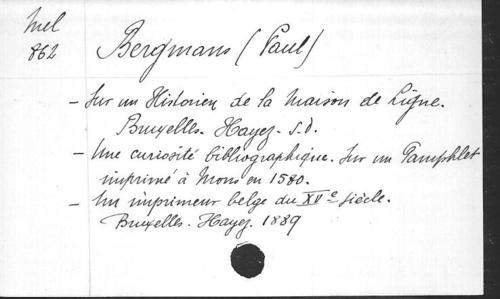 Mel
862
Bergmans (Paul)
- Sur un Historien de la Maison de Ligne.
Bruxelles. Hayez. s.d.
- Une curiosité bibliographique. Sur un Pamphlet
imprimé à Mons en 1580.
- Un imprimeur belge du XVe siècle.
Bruxelles. Hayez. 1889